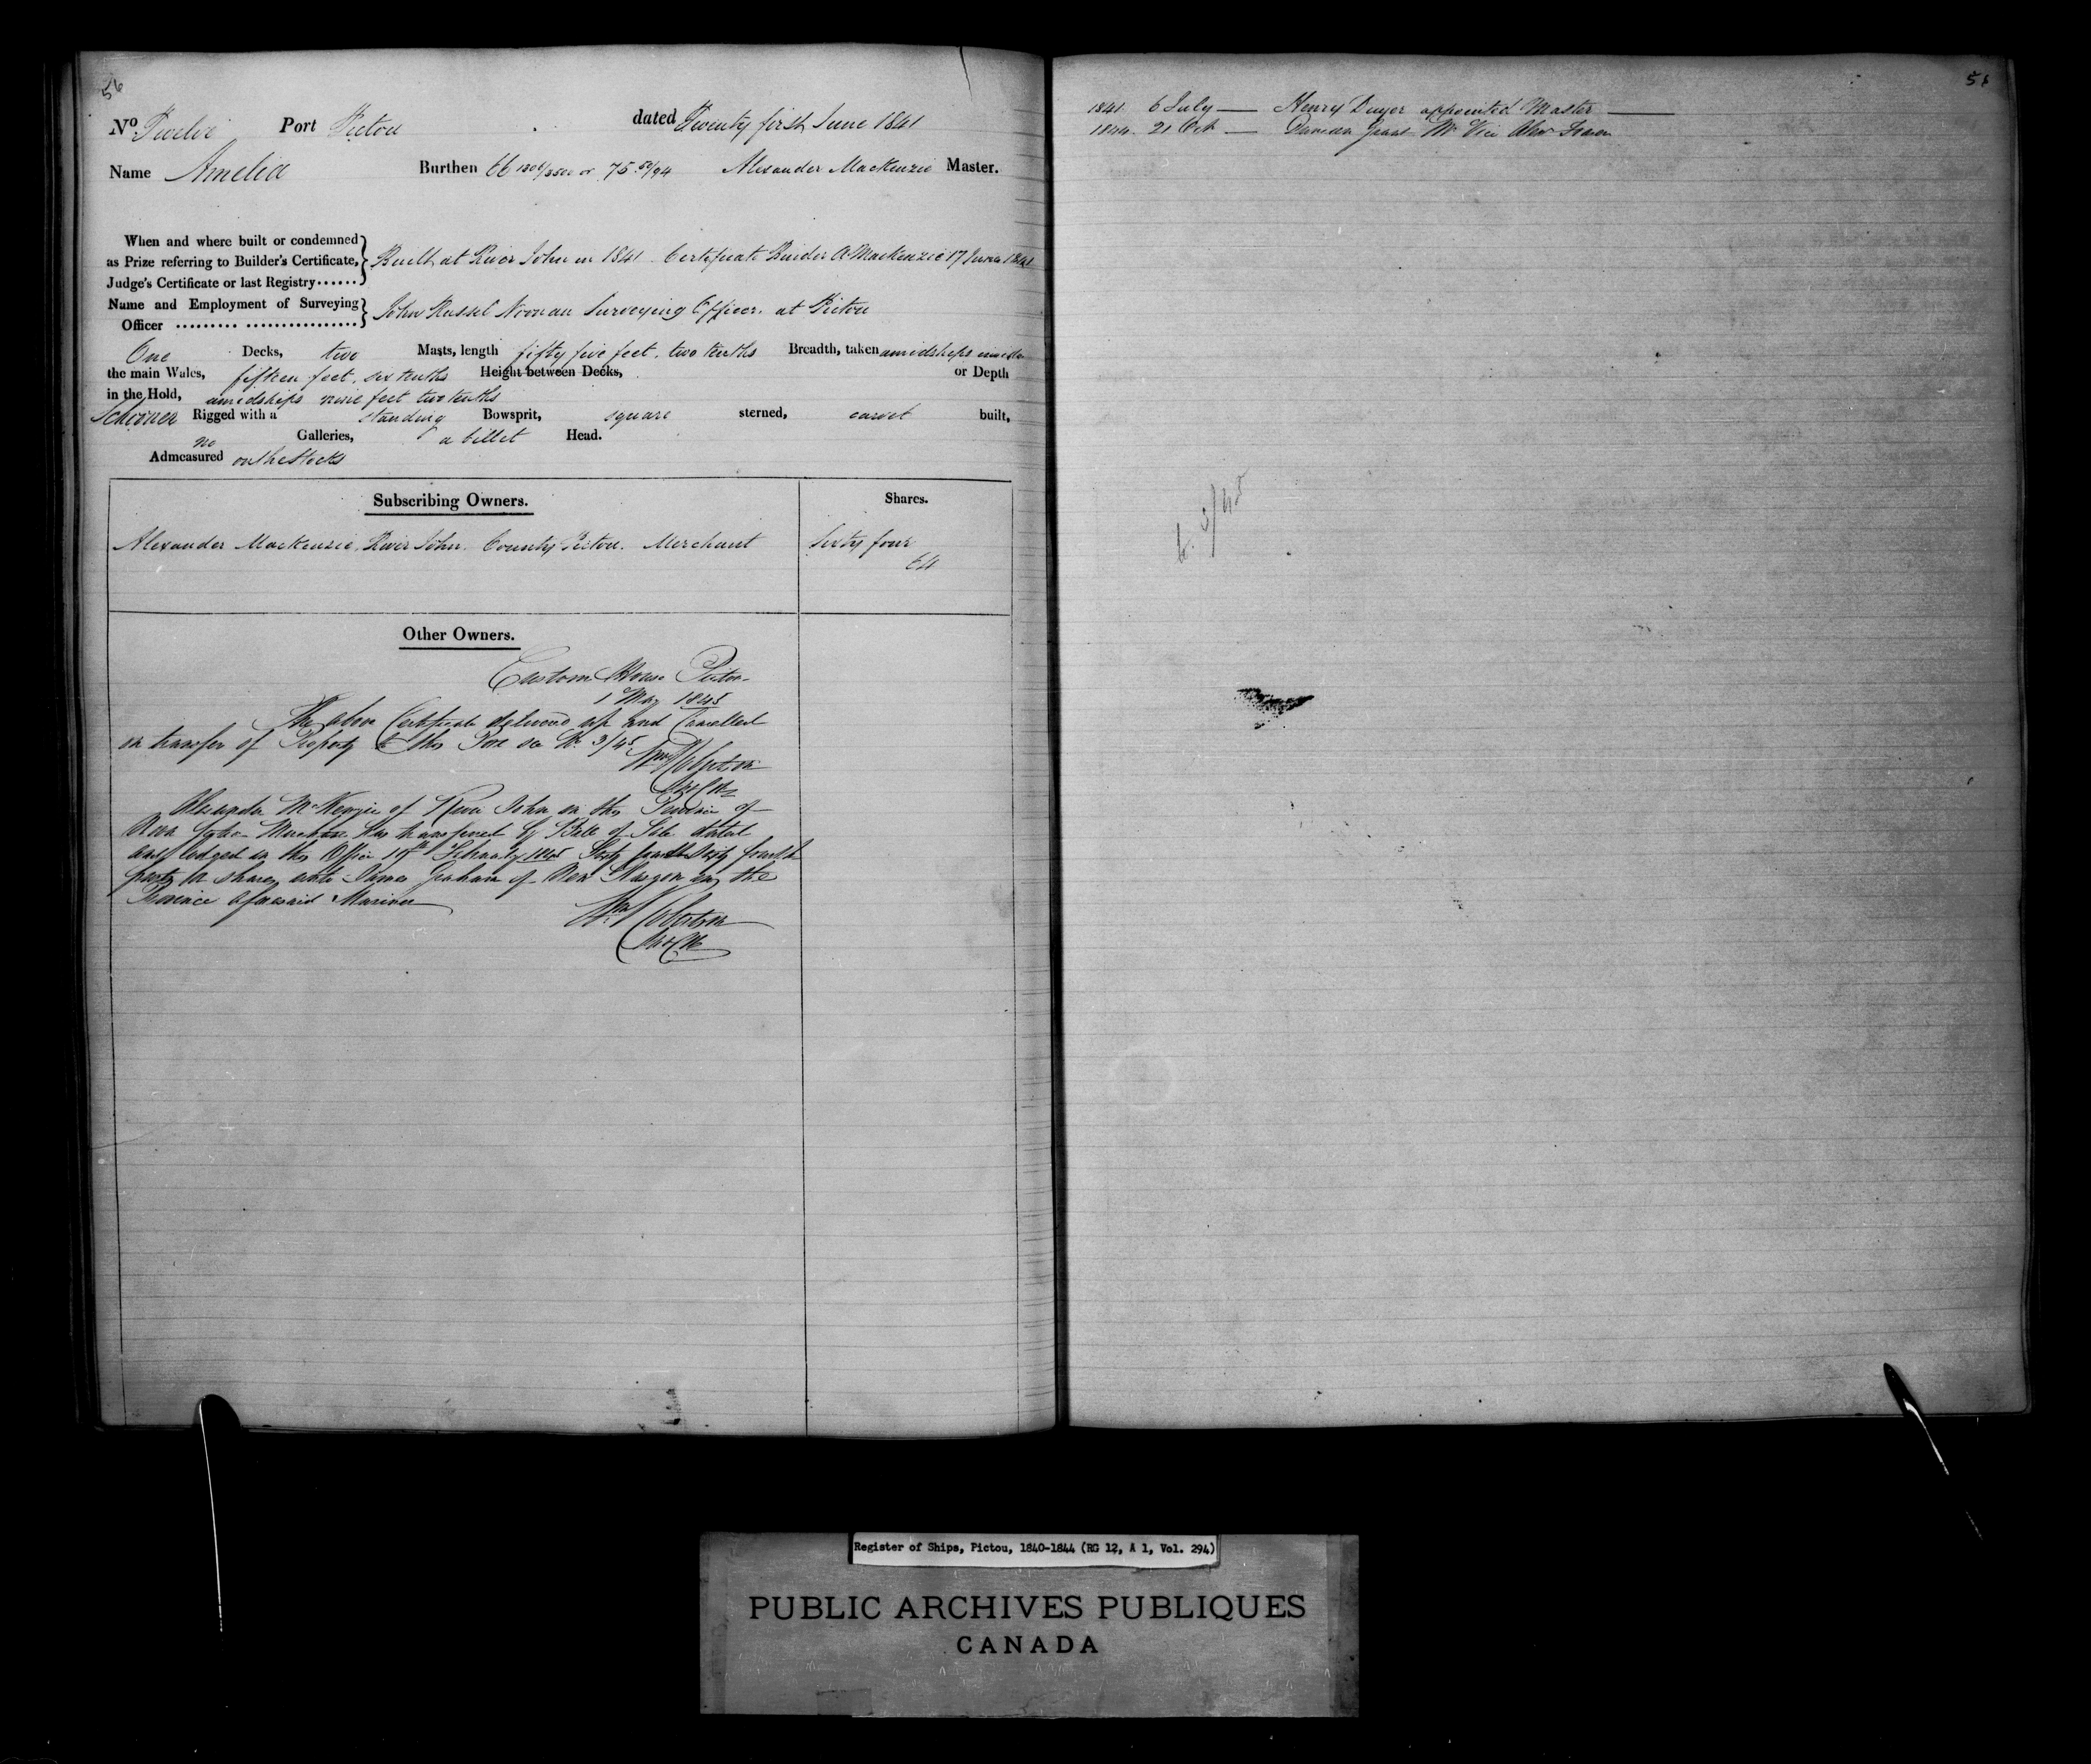 56
No Twelve Port Pictou dated Twenty first June 1841
Name Amelia Burthen 66 1304/3500 or 75 50/94 Alexander MacKenzie Master.
When and where built or condemned
as Prize referring to Builder's Certificate,
Judge's Certificate or last Registry
Built at River John in 1841 Certificate A. MacKenzie 17 June 1841
Name and Employment of Surveying
Officer
John Russel Noonan Surveying Officer. at Pictou
One Decks, two Masts, length fifty five feet, two tenths Breadth, taken amidships
the main Wales, fifteen feet, six tenths Height between Decks, or Depth
in the Hold, amidships nine feet two tenths
Schooner Rigged with a standing Bowsprit, square sterned, carvel built,
no Galleries, a billet Head.
Admeasured on the Stocks
Subscribing Owners. Shares.
Alexander MacKenzie, River John. County Pictou. Merchant Sixty four
64
Other Owners.
Custom House Pictou
1 May 1845
The above Certificate delivered up and Cancelled
on transfer of Property to this Port see No. 3/45
Wm Robertson
Alexander McKenzie of River John in the Province of
Nova Scotia has transferred by Bill of Sale dated
and lodged in this Office February 1845 Sixty four Sixty fourth
parts or shares unto James Graham of New Glasgow in the
Province aforesaid Mariner
Wm Robertson
1841 6 July — Henry Dwyer appointed Master
1844 21 Oct — Grant Mr Vice Alexr Fraser
3/45
Register of Ships, Pictou, 1840-1844 (RG 12, A 1, Vol. 294)
PUBLIC ARCHIVES PUBLIQUES
CANADA